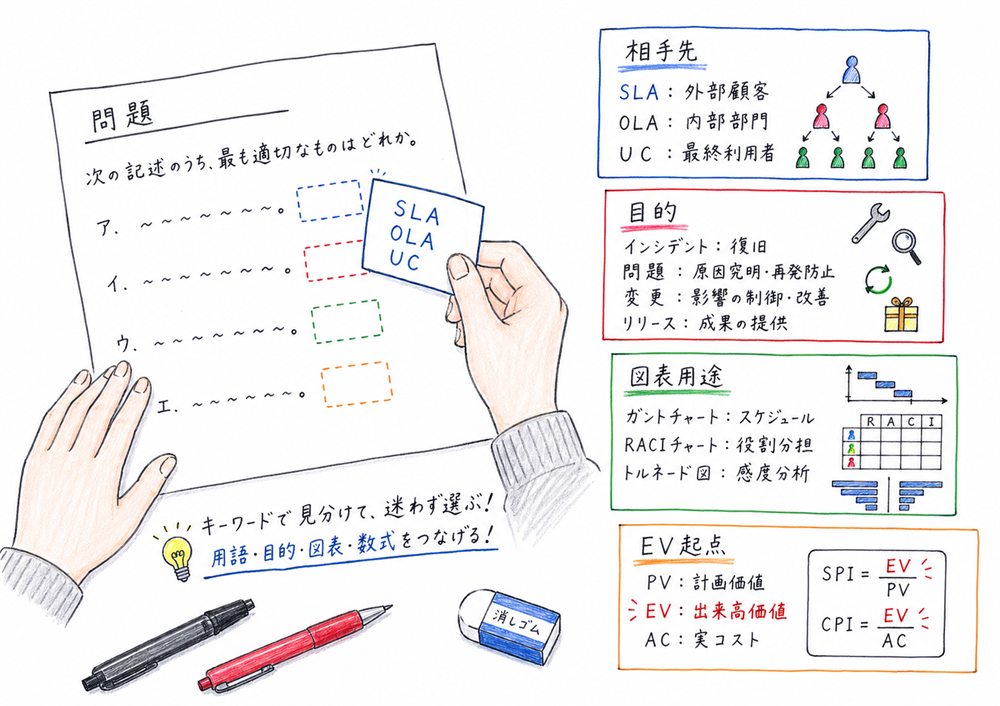 問題
次の記述のうち、最も適切なものはどれか。
ア. ～～～～～～～。
イ. ～～～～～～～。
ウ. ～～～～～～～。
エ. ～～～～～～。
SLA
OLA
UC
キーワードで見分けて、迷わず選ぶ!
用語・目的・図表・数式をつなげる!
消しゴム
相手先
SLA : 外部顧客
OLA : 内部部門
UC : 最終利用者
目的
インシデント : 復旧
問題 : 原因究明・再発防止
変更 : 影響の制御・改善
リリース : 成果の提供
図表用途
ガントチャート : スケジュール
RACIチャート : 役割分担
トルネード図 : 感度分析
R A C I
EV起点
PV : 計画価値
EV : 出来高価値
AC : 実コスト
SPI = EV
PV
CPI = EV
AC